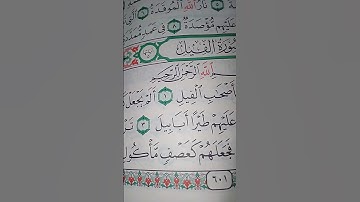 نَارُ اللَّهِ الْمُوقَدَةُ
عَلَيْهِم مُّؤْصَدَةٌ ٨ فِي عَمَدٍ
سُورَةُ الْفِيلِ
اللَّهِ الرَّحْمَٰنِ الرَّحِيمِ
أَصْحَابِ الْفِيلِ ١ أَلَمْ يَجْعَلْ
عَلَيْهِمْ طَيْرًا أَبَابِيلَ ٣
فَجَعَلَهُمْ كَعَصْفٍ مَّأْكُولٍ
٦٠١